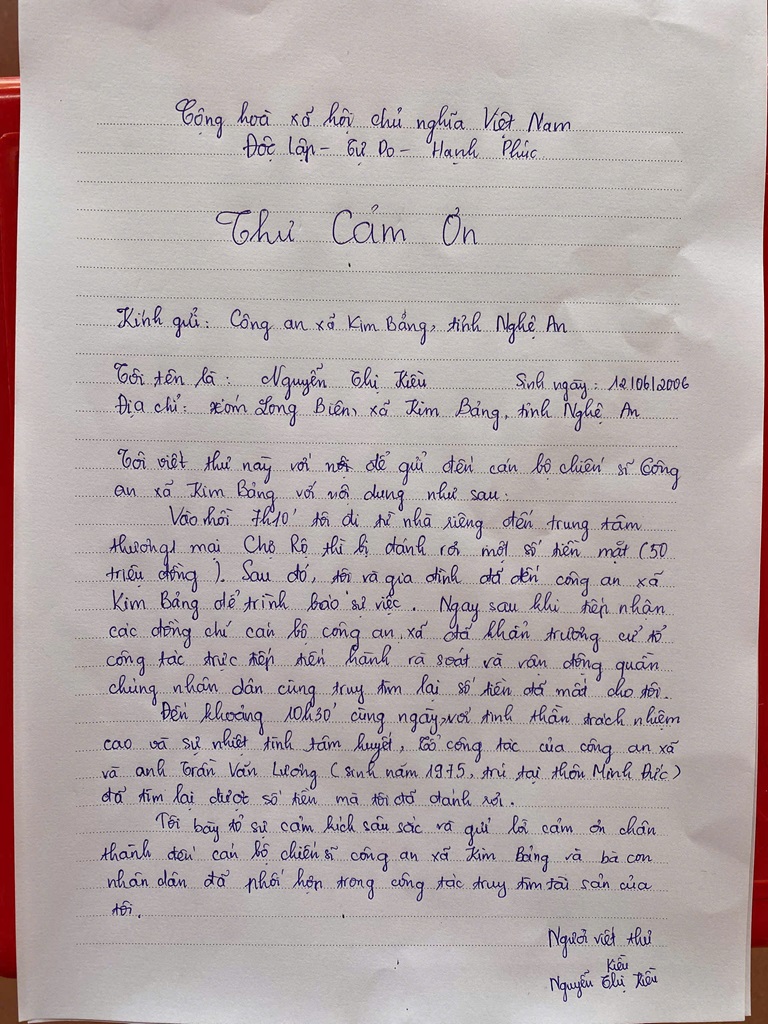 Cộng hoà xã hội chủ nghĩa Việt Nam
Độc Lập - Tự Do - Hạnh Phúc
Thư Cảm Ơn
Kính gửi: Công an xã Kim Bảng, tỉnh Nghệ An
Tôi tên là: Nguyễn Thị Kiều Sinh ngày: 12/06/2006
Địa chỉ: xóm Long Biên, xã Kim Bảng, tỉnh Nghệ An
Tôi viết thư này với để gửi đến cán bộ chiến sĩ Công
an xã Kim Bảng với nội dung như sau:
Vào hồi 7h10' tôi đi từ nhà riêng đến trung tâm
thương mại Chợ Rộ thì bị đánh rơi một số tiền mặt (50
triệu đồng). Sau đó, tôi và gia đình đã đến công an xã
Kim Bảng để trình báo sự việc. Ngay sau khi tiếp nhận
các đồng chí cán bộ công an xã đã khẩn trương cử tổ
công tác trực tiếp tiến hành rà soát và vận động quần
chúng nhân dân cùng truy tìm lại số tiền đã mất cho tôi.
Đến khoảng 10h30' cùng ngày, với tinh thần trách nhiệm
cao và sự nhiệt tình tâm huyết, Tổ công tác của công an xã
và anh Trần Văn Lương (sinh năm 1975, trú tại thôn Minh Đức)
đã tìm lại được số tiền mà tôi đã đánh rơi.
Tôi bày tỏ sự cảm kích sâu sắc và gửi lời cảm ơn chân
thành đến cán bộ chiến sĩ công an xã Kim Bảng và bà con
nhân dân đã phối hợp trong công tác truy tìm tài sản của
tôi.
Người viết thư
Kiều
Nguyễn Thị Kiều